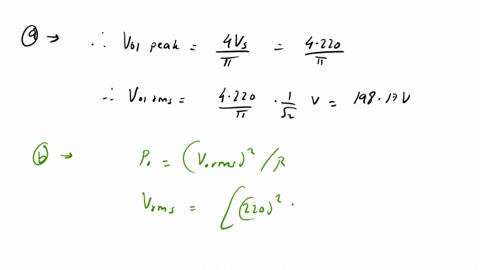 ⓐ → ∴ Vo1 peak = 4Vs/π = 4·220/π
∴ Vo1 rms = 4·220/π · 1/√2 V = 198·17V
ⓑ → Po = (Vo rms)² / R
Vrms = [(220)² ·